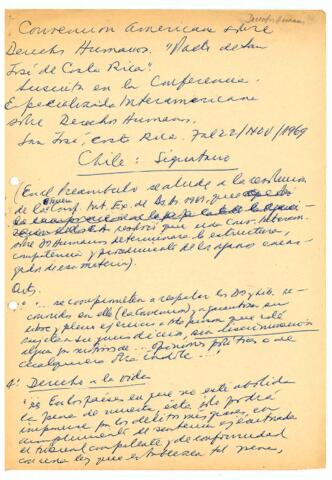 Derechos Humanos
Convención Americana sobre
Derechos Humanos. "Pacto de San
José de Costa Rica".
Suscrita en la Conferencia
Especializada Interamericana
sobre Derechos Humanos.
San José, Costa Rica. 7 al 22/Nov/1969
Chile: Signatario
(En el Preámbulo se alude a la
de la Conf. Int. Ex. de 1967, que
resolvió que una Conv. Interam.
sobre D. Humanos determinara la estructura,
competencia y procedimiento de los órganos encar-
gados de esa materia).
Art.
1º "... se comprometen a respetar los D. y lib. re-
conocidos en ella (la Convención) y a garantizar su
libre y pleno ejercicio a toda persona que esté
sujeta a su jurisdicción, sin discriminación
alguna por motivos de... opiniones políticas o de
cualquiera otra índole...",
4º Derecho a la vida
"2) En los países en que no esté abolida
la pena de muerte, ésta sólo podrá
imponerse por los delitos más graves, en
cumplimiento de sentencia ejecutoriada
de tribunal competente y de conformidad
con una ley que establezca tal pena,